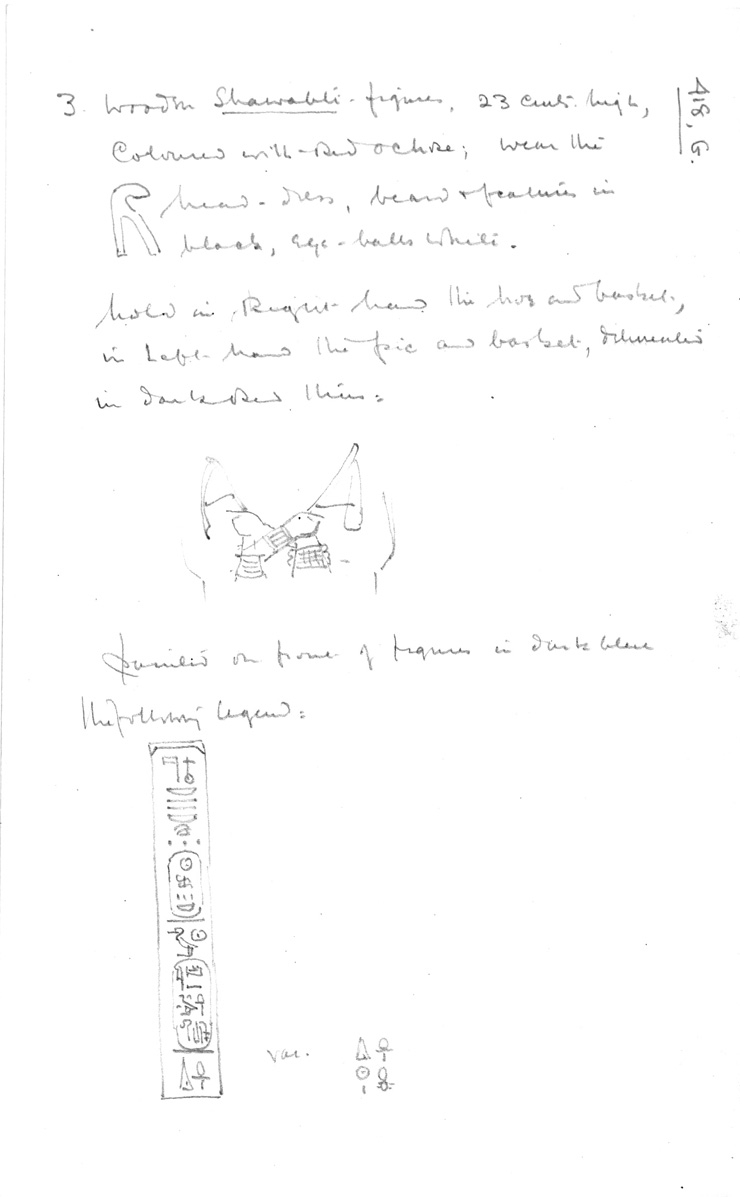 418. G.
3. Wooden Shawabti-figures, 23 cents. high,
Coloured with red ochre; wear the
head-dress, beard & features in
black, eye-balls white.
hold in Right hand the hoe and basket,
in Left hand the pic and basket, delineated
in dark red thus:
painted on front of figures in dark blue
the following legend:
var.